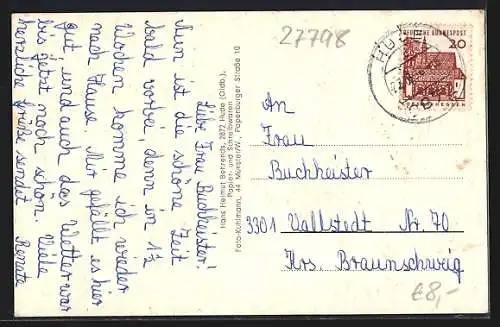 27798
DEUTSCHE BUNDESPOST
20
HESSEN
HUDE
Liebe Frau Buchheister!
Nun ist die schöne Zeit
bald vorbei denn in 1½
Wochen komme ich wieder
nach Hause. Mir gefällt es hier
gut, und auch das Wetter war
bis jetzt noch schön. Viele
herzliche Grüße sendet Renate
Hans Helmut Behrends, 2872 Hude (Oldb.)
Papier- und Schreibwaren
Foto-Kuhlmann, 44 Münster/W., Papenburger Straße 10
An
Frau
Buchheister
3301 Vallstedt Nr. 70
Krs. Braunschweig
€8,-